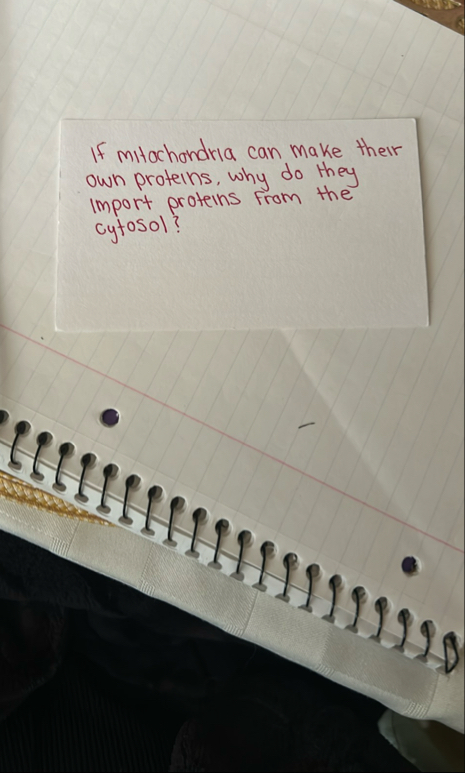 If mitochondria can make their
own proteins, why do they
import proteins from the
cytosol?